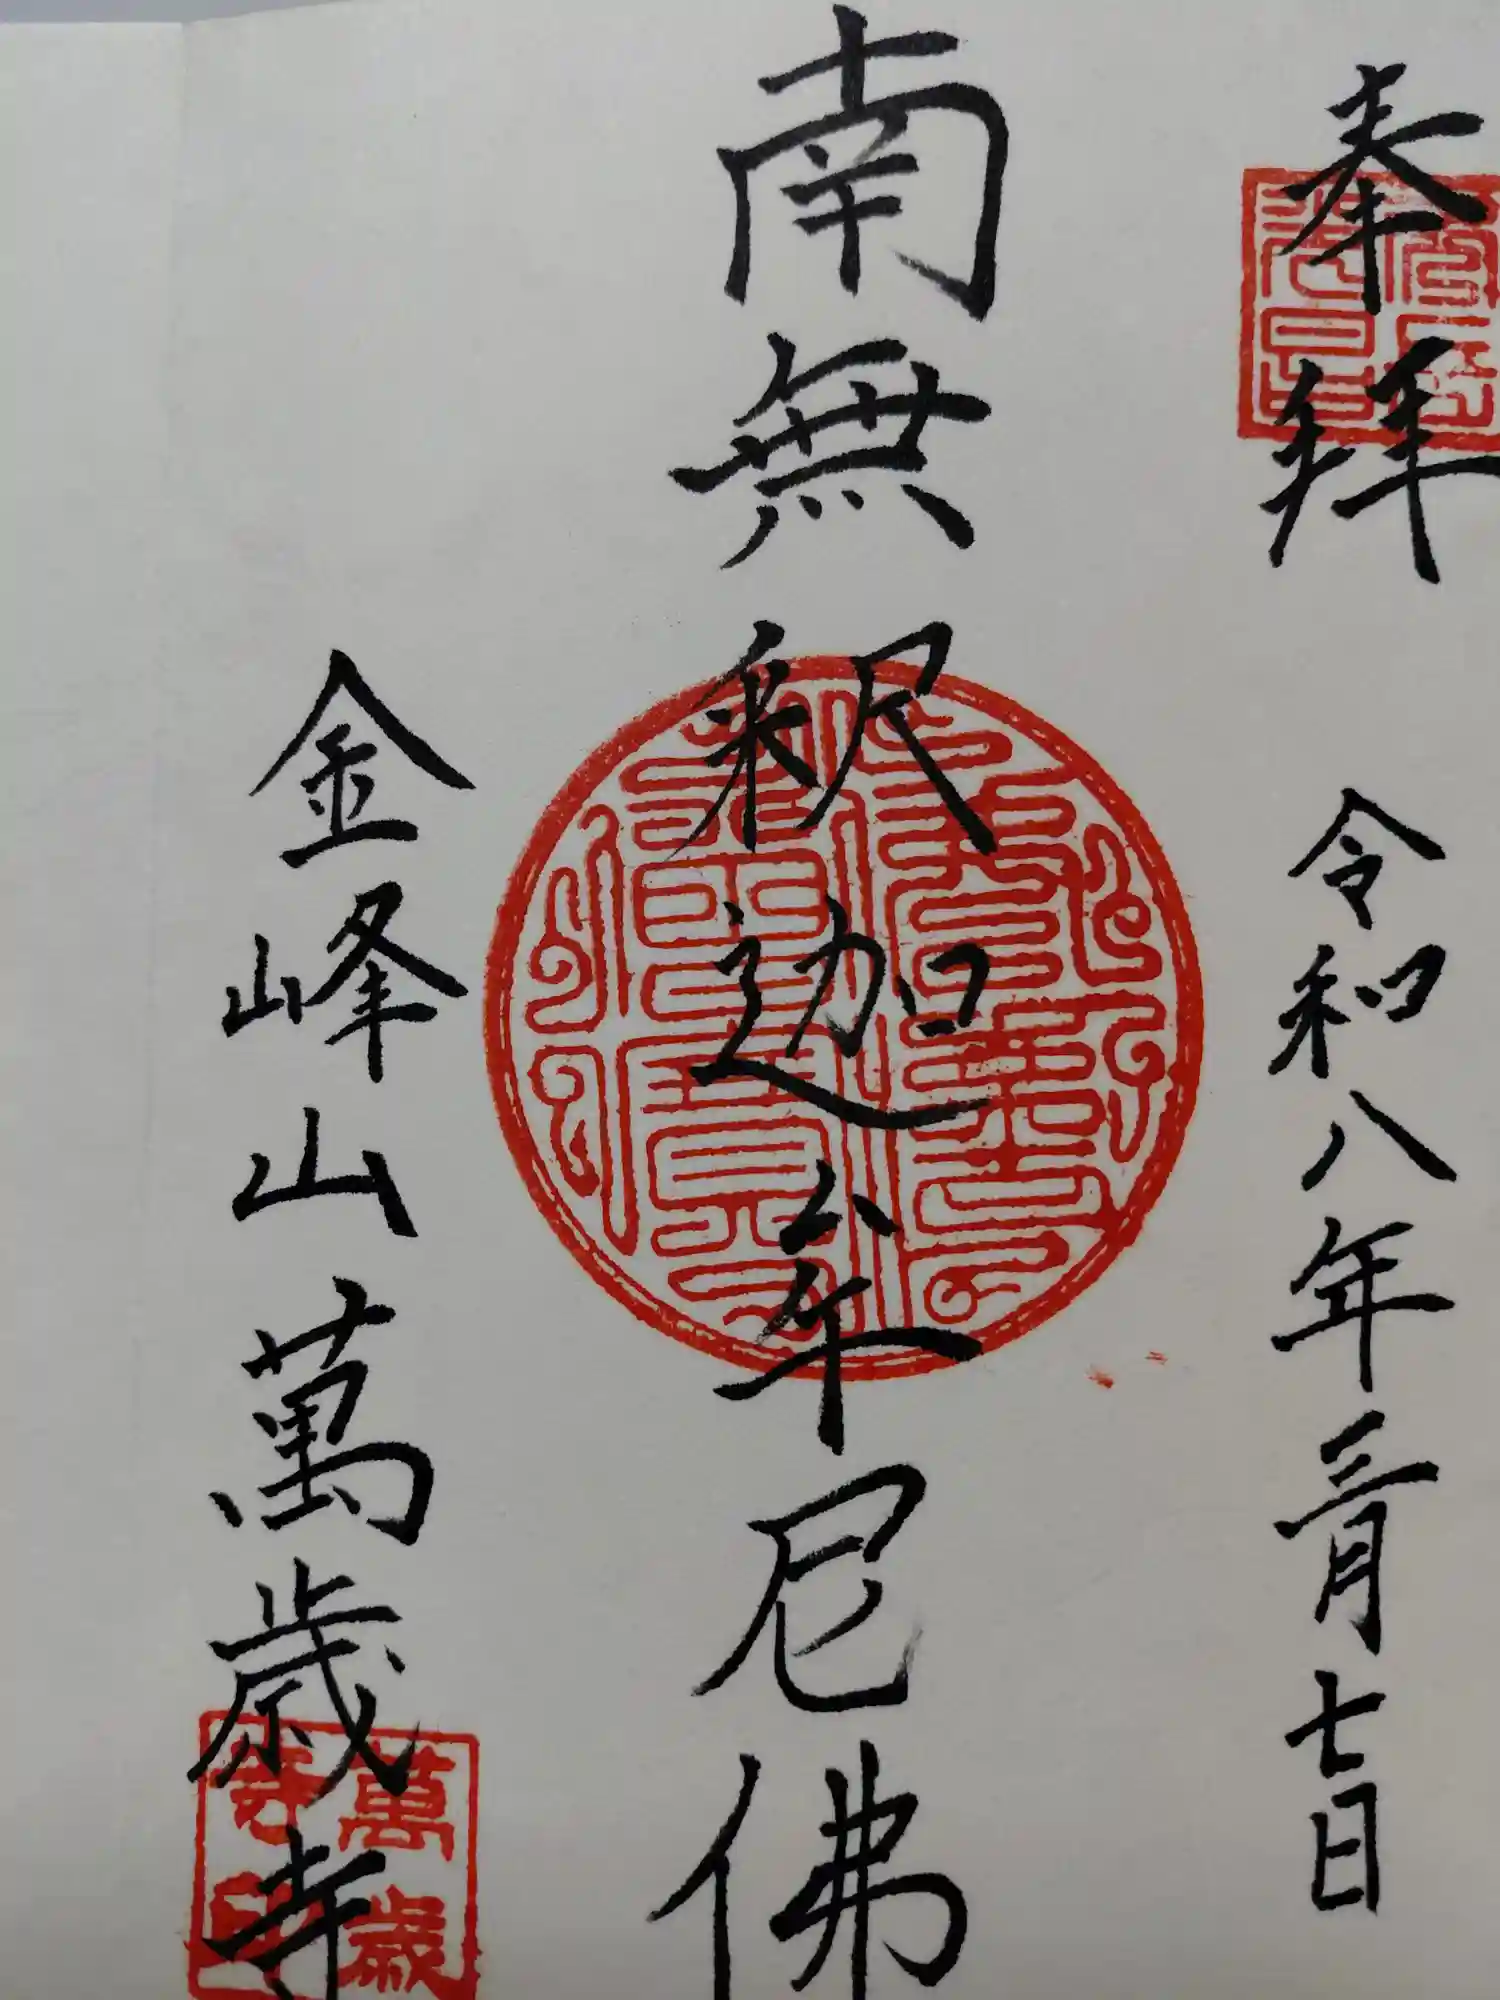 奉拜
令和八年三月七日
南無釈迦牟尼佛
金峰山萬歳寺
萬歳寺印